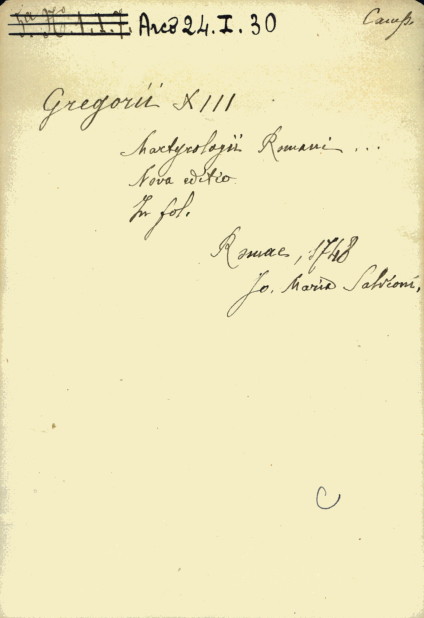 Arco 24. I. 30
Camp.
Gregorii XIII
Martyrologii Romani ...
Nova editio
In fol.
Romae, 1748
Jo. Maria Salvioni,
C